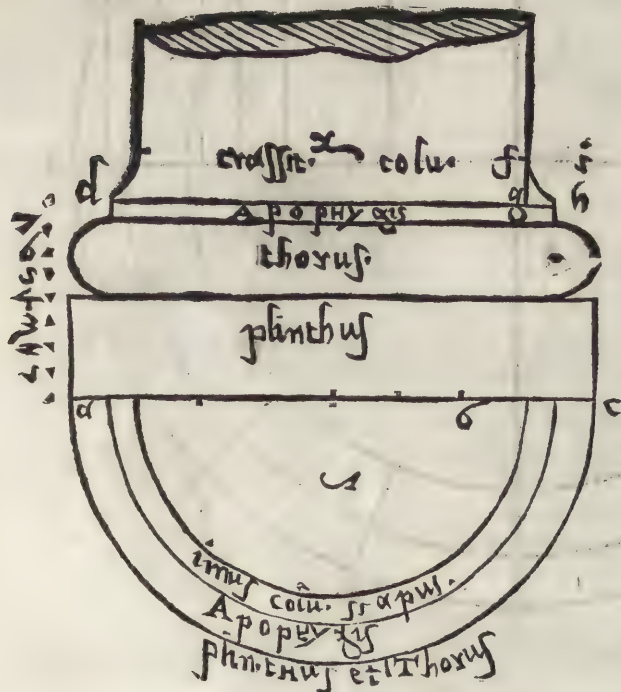 crassit. colu. f
d g h
Apophygis
thorus.
plinthus
a b c
imus colu. scapus.
Apophygis
plinthus et Thorus